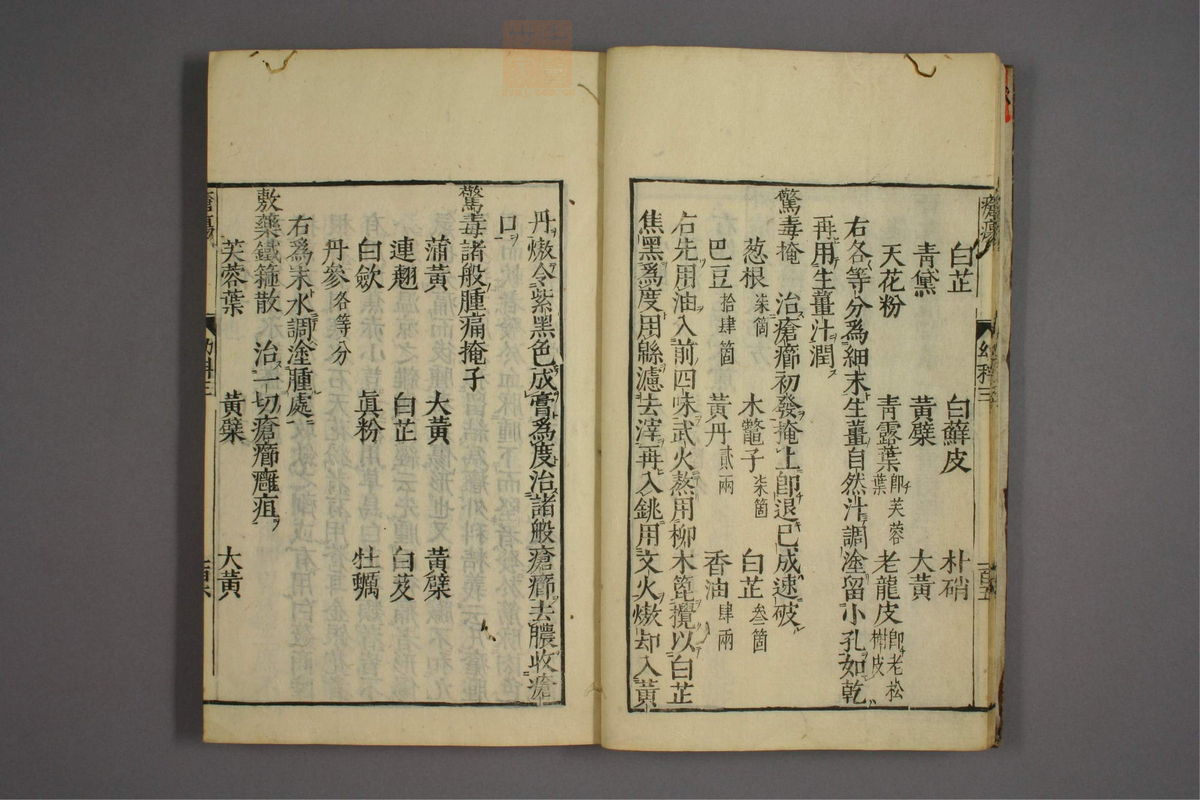 白芷　白蘚皮　朴硝
青黛　黃蘗　大黃
天花粉　青露葉 即芙蓉葉　老龍皮 即老松樹皮
右各等分爲細末生薑自然汁調塗留小孔如乾
再用生薑汁潤
驚毒掩　治瘡癤初發掩上即退已成速破
葱根 柒箇　木鼈子 柒箇　白芷 叁箇
巴豆 拾肆箇　黃丹 貳兩　香油 肆兩
右先用油入前四味武火熬用柳木箆攪以白芷
焦黑爲度用緜濾去滓再入銚用文火熬却入黃
丹熬令紫黑色成膏爲度治諸般瘡癤去膿收瘡
口
驚毒諸般腫痛掩子
蒲黃　大黃　黃蘗
連翹　白芷　白芨
白歛　眞粉　牡蠣
丹參 各等分
右爲末水調塗腫處
敷藥鐵箍散　治一切瘡癤癰疽
芙蓉葉　黃蘗　大黃